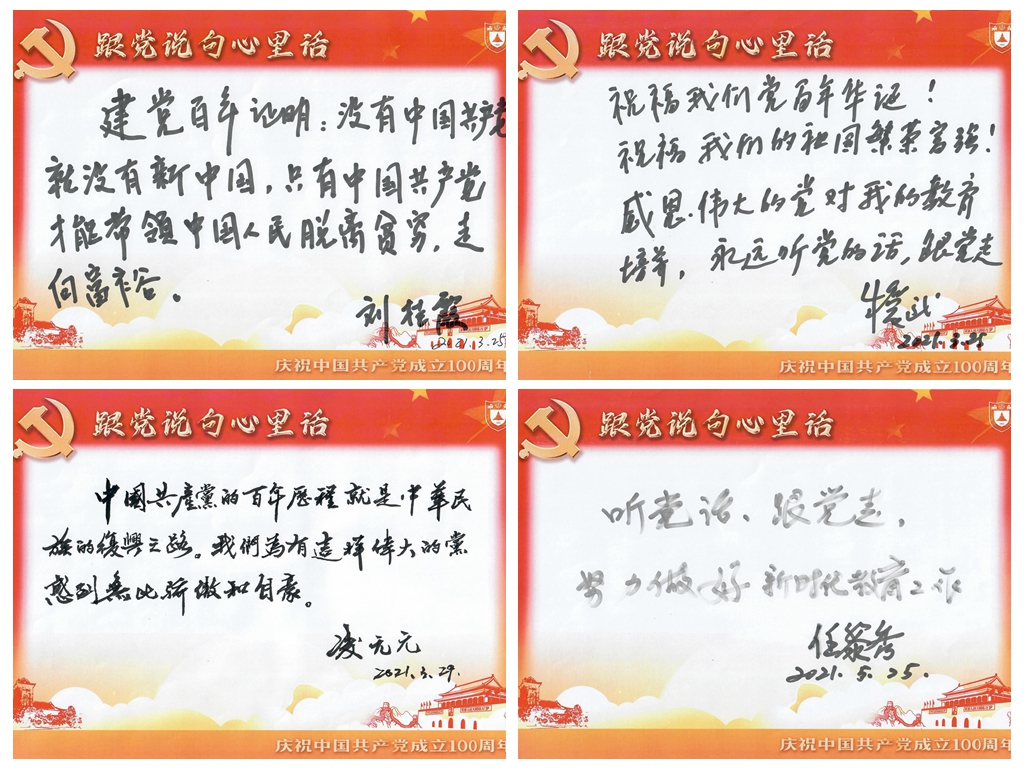 跟党说句心里话
建党百年证明：没有中国共产党
就没有新中国，只有中国共产党
才能带领中国人民脱离贫穷，走
向富裕。
刘桂霞
2021.3.25
庆祝中国共产党成立100周年
跟党说句心里话
祝福我们党百年华诞！
祝福我们的祖国繁荣富强！
感恩伟大的党对我的教育
培养，永远听党的话，跟党走
2021.3.25
庆祝中国共产党成立100周年
跟党说句心里话
中國共產黨的百年歷程就是中華民
族的復興之路。我們為有這样偉大的黨
感到無比骄傲和自豪。
凌元元
2021.3.29.
庆祝中国共产党成立100周年
跟党说句心里话
听党话、跟党走，
努力做好新时代教育工作
任黎秀
2021.5.25.
庆祝中国共产党成立100周年